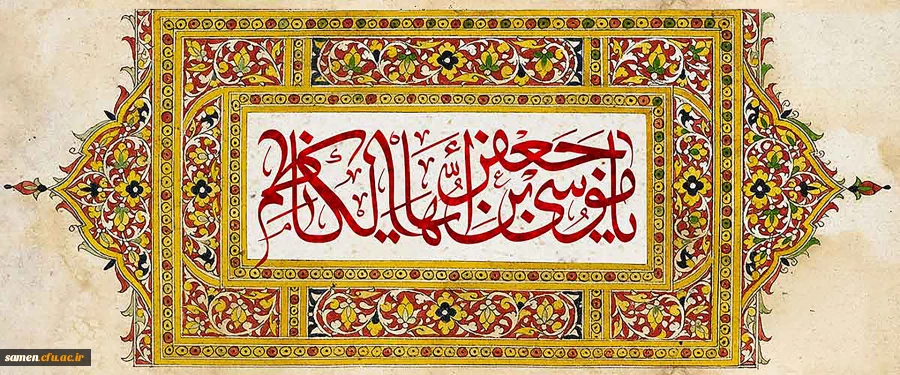 يا موسى بن جعفر أيها الكاظم
samen.cfu.ac.ir